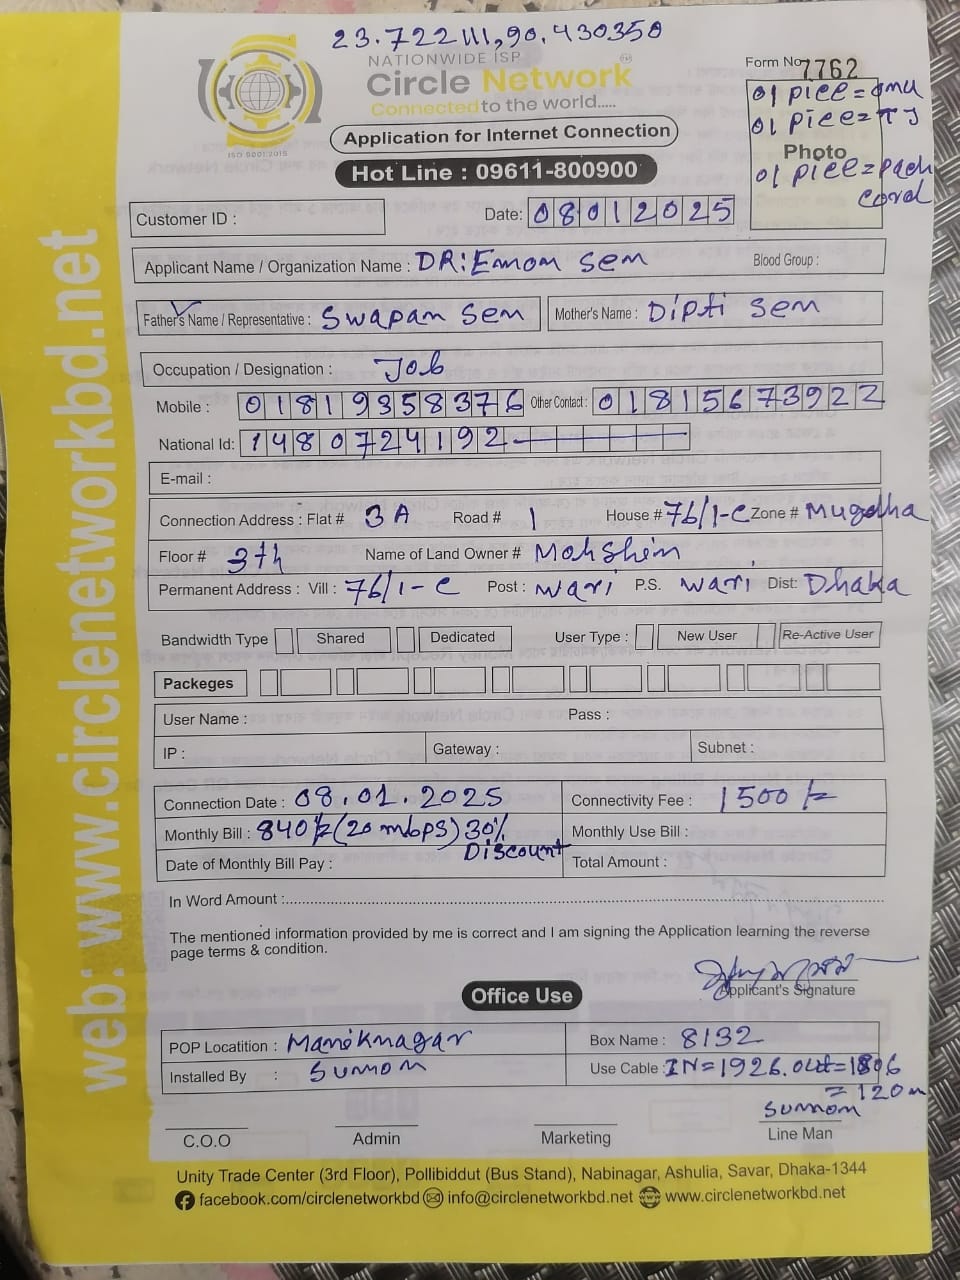 23.722111,90.430350
NATIONWIDE ISP
Circle Network
Connected to the world.....
ISO 9001:2015
Application for Internet Connection
Hot Line : 09611-800900
Form No 7762
01 piece = onu
01 piece = TJ
Photo
01 piece = pach
cord
Customer ID :
Date: 08012025
Applicant Name / Organization Name : DR: Emon Sen Blood Group :
Father's Name / Representative : Swapan Sen Mother's Name : Dipti Sen
Occupation / Designation : Job
Mobile : 01819358376 Other Contact : 01815673922
National Id: 1480724192
E-mail :
Connection Address : Flat # 3A Road # 1 House # 76/1-C Zone # Mugdha
Floor # 3th Name of Land Owner # Mohshin
Permanent Address : Vill : 76/1-C Post : Wari P.S. Wari Dist: Dhaka
Bandwidth Type Shared Dedicated User Type : New User Re-Active User
Packeges
User Name : Pass :
IP : Gateway : Subnet :
Connection Date : 08.01.2025 Connectivity Fee : 1500/=
Monthly Bill : 840/=(20 mbps) 30% Monthly Use Bill :
Discount
Date of Monthly Bill Pay : Total Amount :
In Word Amount :
The mentioned information provided by me is correct and I am signing the Application learning the reverse
page terms & condition.
Applicant's Signature
Office Use
POP Locatition : Maniknagar Box Name : 8132
Installed By : Sumon Use Cable : IN=1926. out=1806
= 120m
Sumon
C.O.O Admin Marketing Line Man
Unity Trade Center (3rd Floor), Pollibiddut (Bus Stand), Nabinagar, Ashulia, Savar, Dhaka-1344
facebook.com/circlenetworkbd info@circlenetworkbd.net www.circlenetworkbd.net
web: www.circlenetworkbd.net